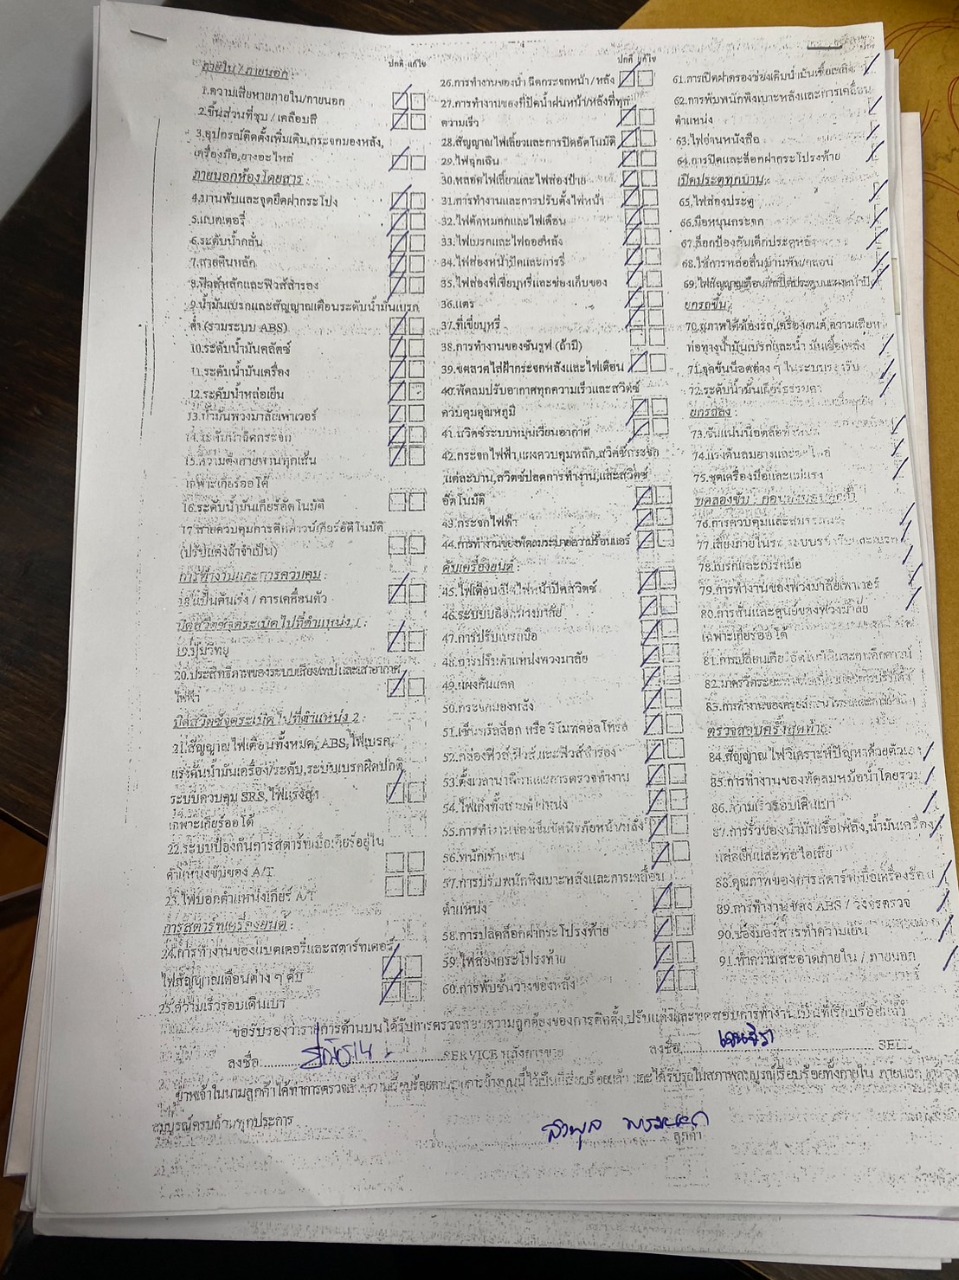 ภายใน / ภายนอก
ปกติ แก้ไข
1.ความเสียหายภายใน/ภายนอก
2.ชิ้นส่วนที่ชุบ / เคลือบสี
3.อุปกรณ์ติดตั้งเพิ่มเติม,กระจกมองหลัง,
เครื่องมือ,ยางอะไหล่
ภายนอกห้องโดยสาร :
4.บานพับและจุดยึดฝากระโปง
5.แบตเตอรี่
6.ระดับน้ำกลั่น
7.สายดินหลัก
8.ฟิวส์หลักและฟิวส์สำรอง
9.น้ำมันเบรกและสัญญาณเตือนระดับน้ำมันเบรก
ต่ำ (รวมระบบ ABS)
10.ระดับน้ำมันคลัตช์
11.ระดับน้ำมันเครื่อง
12.ระดับน้ำหล่อเย็น
13.น้ำมันพวงมาลัยเพาเวอร์
14.ระดับน้ำฉีดกระจก
15.ความตึงสายพานทุกเส้น
เฉพาะเกียร์ออโต้
16.ระดับน้ำมันเกียร์อัตโนมัติ
17.สายควบคุมการคิกดาวน์เกียร์อัตโนมัติ
(ปรับแต่งถ้าจำเป็น)
การทำงานและการควบคุม :
18.แป้นคันเร่ง / การเคลื่อนตัว
บิดสวิตช์จุดระเบิดไปที่ตำแหน่ง 1 :
19.วิทยุ
20.ประสิทธิภาพของระบบเสียงเทปและเสาอากาศ
ไฟฟ้า
บิดสวิตช์จุดระเบิดไปที่ตำแหน่ง 2 :
21.สัญญาณไฟเตือนทั้งหมด, ABS,ไฟเบรค,
แรงดันน้ำมันเครื่อง/ระดับ,ระบบเบรกผิดปกติ
ระบบควบคุม SRS,ไฟแรงสูง
เฉพาะเกียร์ออโต้
22.ระบบป้องกันการสตาร์ทเมื่อเกียร์อยู่ใน
ตำแหน่งขับของ A/T
23.ไฟบอกตำแหน่งเกียร์ A/T
การสตาร์ทเครื่องยนต์ :
24.การทำงานของแบตเตอรี่และสตาร์ทเตอร์
ไฟสัญญาณเตือนต่าง ๆ ดับ
25.ความเร็วรอบเดินเบา
ปกติ แก้ไข
26.การทำงานของน้ำฉีดกระจกหน้า/หลัง
27.การทำงานของที่ปัดน้ำฝนหน้า/หลังที่ทุก
ความเร็ว
28.สัญญาณไฟเลี้ยวและการปิดอัตโนมัติ
29.ไฟฉุกเฉิน
30.หลอดไฟเลี้ยวและไฟส่องป้าย
31.การทำงานและการปรับตั้งไฟหน้า
32.ไฟตัดหมอกและไฟเตือน
33.ไฟเบรคและไฟถอยหลัง
34.ไฟส่องหน้าปัดและการหรี่
35.ไฟส่องที่เขี่ยบุหรี่และช่องเก็บของ
36.แตร
37.ที่เขี่ยบุหรี่
38.การทำงานของซันรูฟ (ถ้ามี)
39.ขดลวดไล่ฝ้ากระจกหลังและไฟเตือน
40.พัดลมปรับอากาศทุกความเร็วและสวิตช์
ควบคุมอุณหภูมิ
41.สวิตช์ระบบหมุนเวียนอากาศ
42.กระจกไฟฟ้า,แผงควบคุมหลัก,สวิตช์กระจก
แต่ละบาน,สวิตช์ปลดการทำงาน,และสวิตช์
อัตโนมัติ
43.กระจกไฟฟ้า
44.การทำงานของพัดลมระบายความร้อนแอร์
ดับเครื่องยนต์ :
45.ไฟเตือนเปิดไฟหน้าปิดสวิตช์
46.ระบบปลดพวงมาลัย
47.การปรับเบรกมือ
48.การปรับตำแหน่งพวงมาลัย
49.แผงกันแดด
50.กระจกมองหลัง
51.เซ็นทรัลล็อก หรือ รีโมทคอลโทรล
52.กล่องฟิวส์,ฟิวส์,และฟิวส์สำรอง
53.ตั้งเวลานาฬิกาและการตรวจทำงาน
54.ไฟเก๋งทั้งสามตำแหน่ง
55.การทำงานเข็มขัดนิรภัยหน้า/หลัง
56.พนักเท้าแขน
57.การปรับพนักพิงเบาะหลังและการเคลื่อน
ตำแหน่ง
58.การปลดล็อกฝากระโปรงท้าย
59.ไฟส่องกระโปรงท้าย
60.การพับชั้นวางของหลัง
61.การเปิดฝาครอบช่องเติมน้ำมันเชื้อเพลิง
62.การพับพนักพิงเบาะหลังและการเคลื่อน
ตำแหน่ง
63.ไฟอ่านหนังสือ
64.การปิดและล็อกฝากระโปรงท้าย
เปิดประตูทุกบาน:
65.ไฟส่องประตู
66.มือหมุนกระจก
67.ล็อกป้องกันเด็กประตูหลัง
68.ใช้การหล่อลื่นบานพับ/กลอน
ยกรถขึ้น :
70.สภาพใต้ท้องรถ,เครื่องยนต์,ความเสียหาย
ท่อทางน้ำมันเบรกและน้ำมันเชื้อเพลิง
71.จุดขันน็อตต่าง ๆ ในระบบรองรับ
72.ระดับน้ำมันเกียร์ธรรมดา
ยกรถลง :
73.ขันแน่นน็อตล้อทั้งหมด
74.แรงดันลมยางและอะไหล่
75.ชุดเครื่องมือและแม่แรง
76.การควบคุมและสมรรถนะ
78.เบรกและเบรกมือ
79.การทำงานของพวงมาลัยเพาเวอร์
80.การสั่นและศูนย์ของพวงมาลัย
เฉพาะเกียร์ออโต้
ตรวจสอบครั้งสุดท้าย:
84.สัญญาณไฟวิเคราะห์ปัญหาด้วยตัวเอง
85.การทำงานของพัดลมหม้อน้ำโดยรวม
86.ความเร็วรอบเดินเบา
87.การรั่วของน้ำมันเชื้อเพลิง,น้ำมันเครื่อง
หล่อเย็นและท่อไอเสีย
88.คุณภาพของการสตาร์ทเมื่อเครื่องร้อน
89.การทำงานของ ABS / วงจรตรวจ
90.ช่องมองสารทำความเย็น
91.ทำความสะอาดภายใน / ภายนอก
ขอรับรองว่ารายการด้านบนได้รับการตรวจสอบความถูกต้องของการติดตั้ง,ปรับแต่งและทดสอบการทำงาน เป็นที่เรียบร้อยแล้ว
ลงชื่อ SERVICE หลังการขาย
ลงชื่อ เจนจิรา SELL
สมบูรณ์ครบถ้วนทุกประการ
ลูกค้า